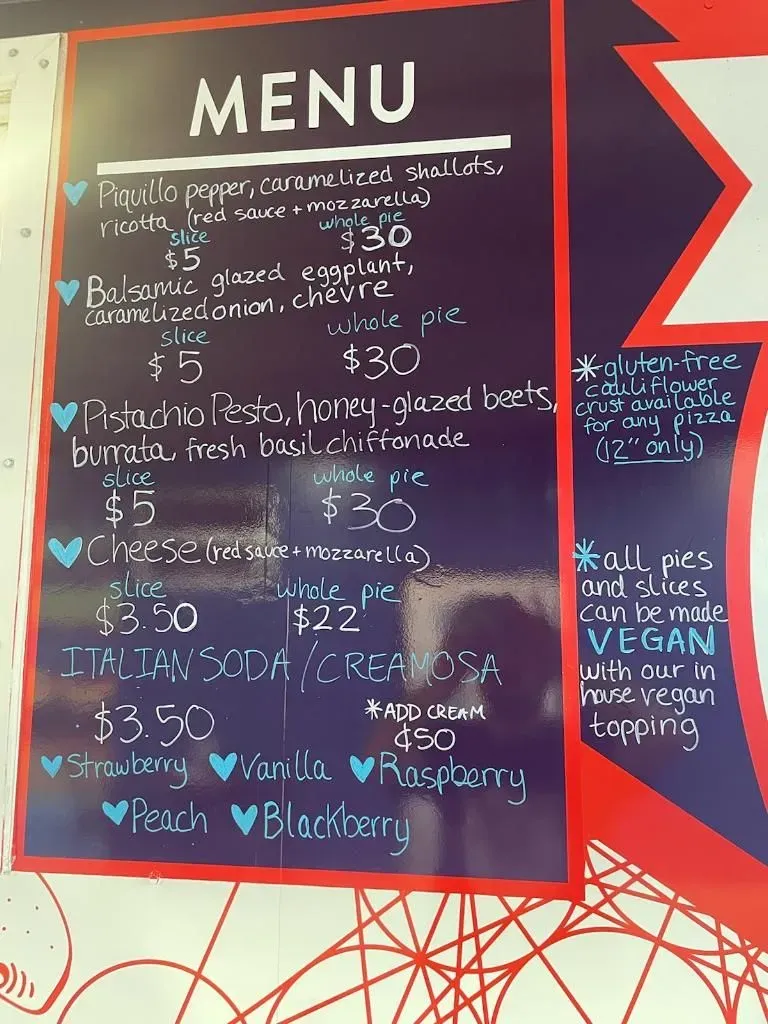 MENU
Piquillo pepper, caramelized shallots,
ricotta (red sauce + mozzarella)
slice whole pie
$5 $30
Balsamic glazed eggplant,
caramelized onion, chevre
slice whole pie
$5 $30
Pistachio Pesto, honey-glazed beets,
burrata, fresh basil chiffonade
slice whole pie
$5 $30
Cheese (red sauce + mozzarella)
slice whole pie
$3.50 $22
ITALIAN SODA / CREAMOSA
$3.50 *ADD CREAM
¢50
Strawberry Vanilla Raspberry
Peach Blackberry
*gluten-free
cauliflower
crust available
for any pizza
(12" only)
*all pies
and slices
can be made
VEGAN
with our in
house vegan
topping